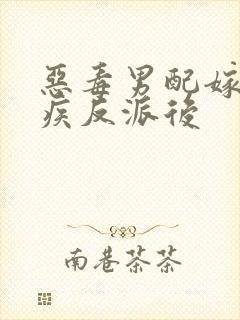 惡毒男配嫁
疾反派後
南巷茶茶